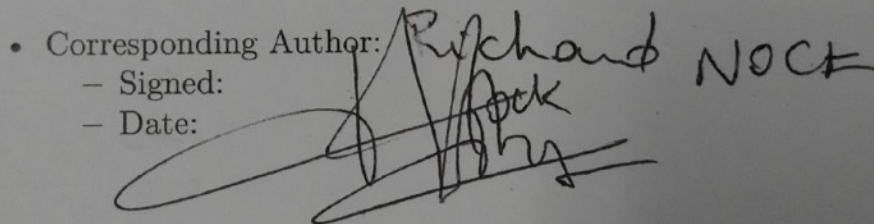 • Corresponding Author: Richard NOCK
– Signed:
– Date: